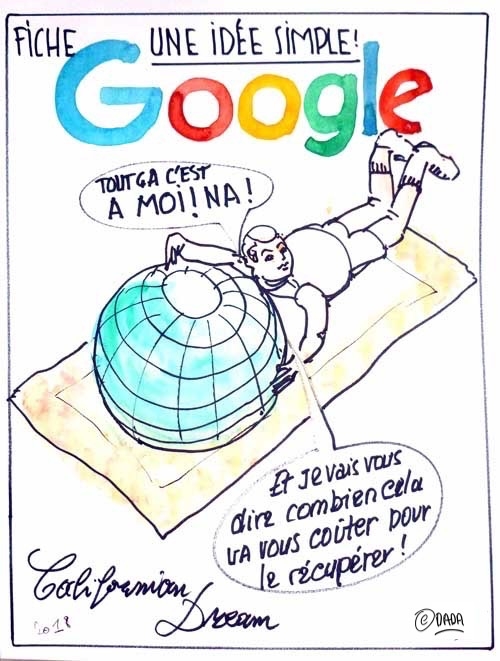 FICHE UNE IDÉE SIMPLE!
Google
TOUT ÇA C'EST
A MOI! NA!
Et je vais vous
dire combien cela
va vous coûter pour
le récupérer!
Californian
Dream
2018
© DADA